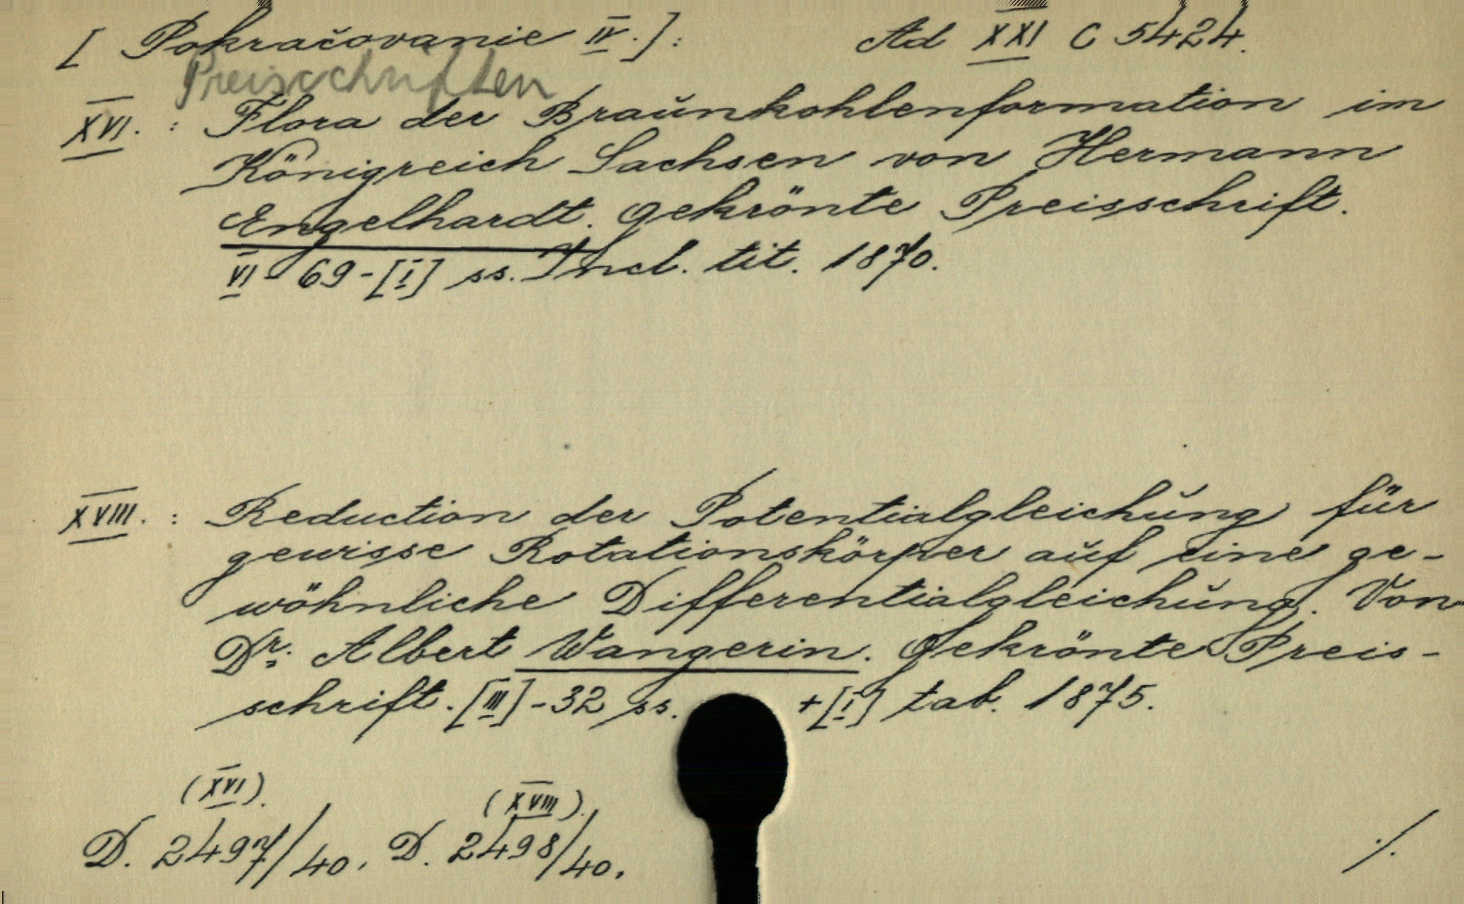 [Pokračovanie IV.]: Ad XXI C 5424.
Preisschriften
XVI. : Flora der Braŭnkohlenformation im
Königreich Sachsen von Hermann
Engelhardt. Gekrönte Preisschrift.
VI - 69 - [I] ss. Incl. tit. 1870.
XVIII. : Reduction der Potentialgleichŭng für
gewisse Rotationskörper aŭf eine ge-
wöhnliche Differentialgleichŭng. Von
Dr. Albert Wangerin. Gekrönte Preis-
schrift. [III] - 32 ss. + [I] tab. 1875.
(XVI). (XVIII).
D. 2497/40. D. 2498/40. ./.